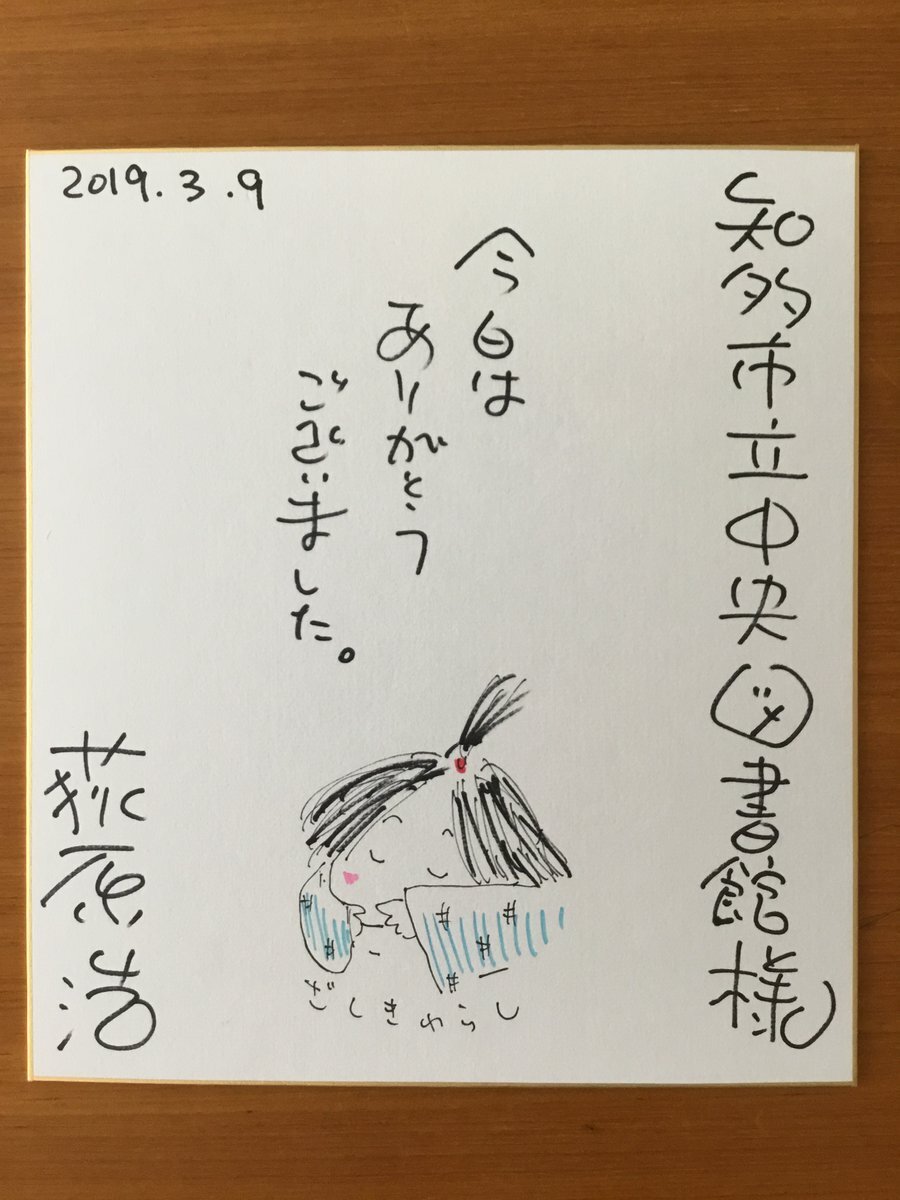 知多市立中央図書館様
2019.3.9
今日は
ありがとう
ございました。
ざしきわらし
荻原浩